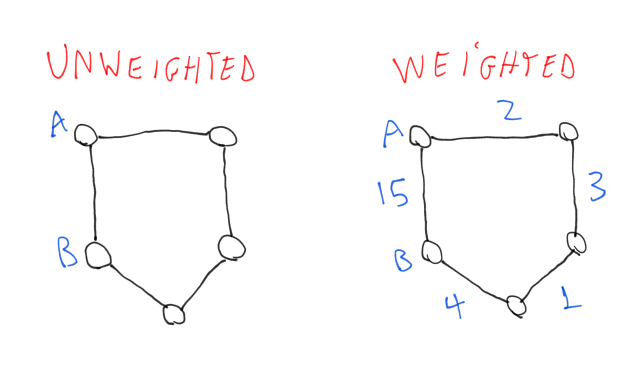 UNWEIGHTED
A
B
WEIGHTED
2
A
15
3
B
4
1